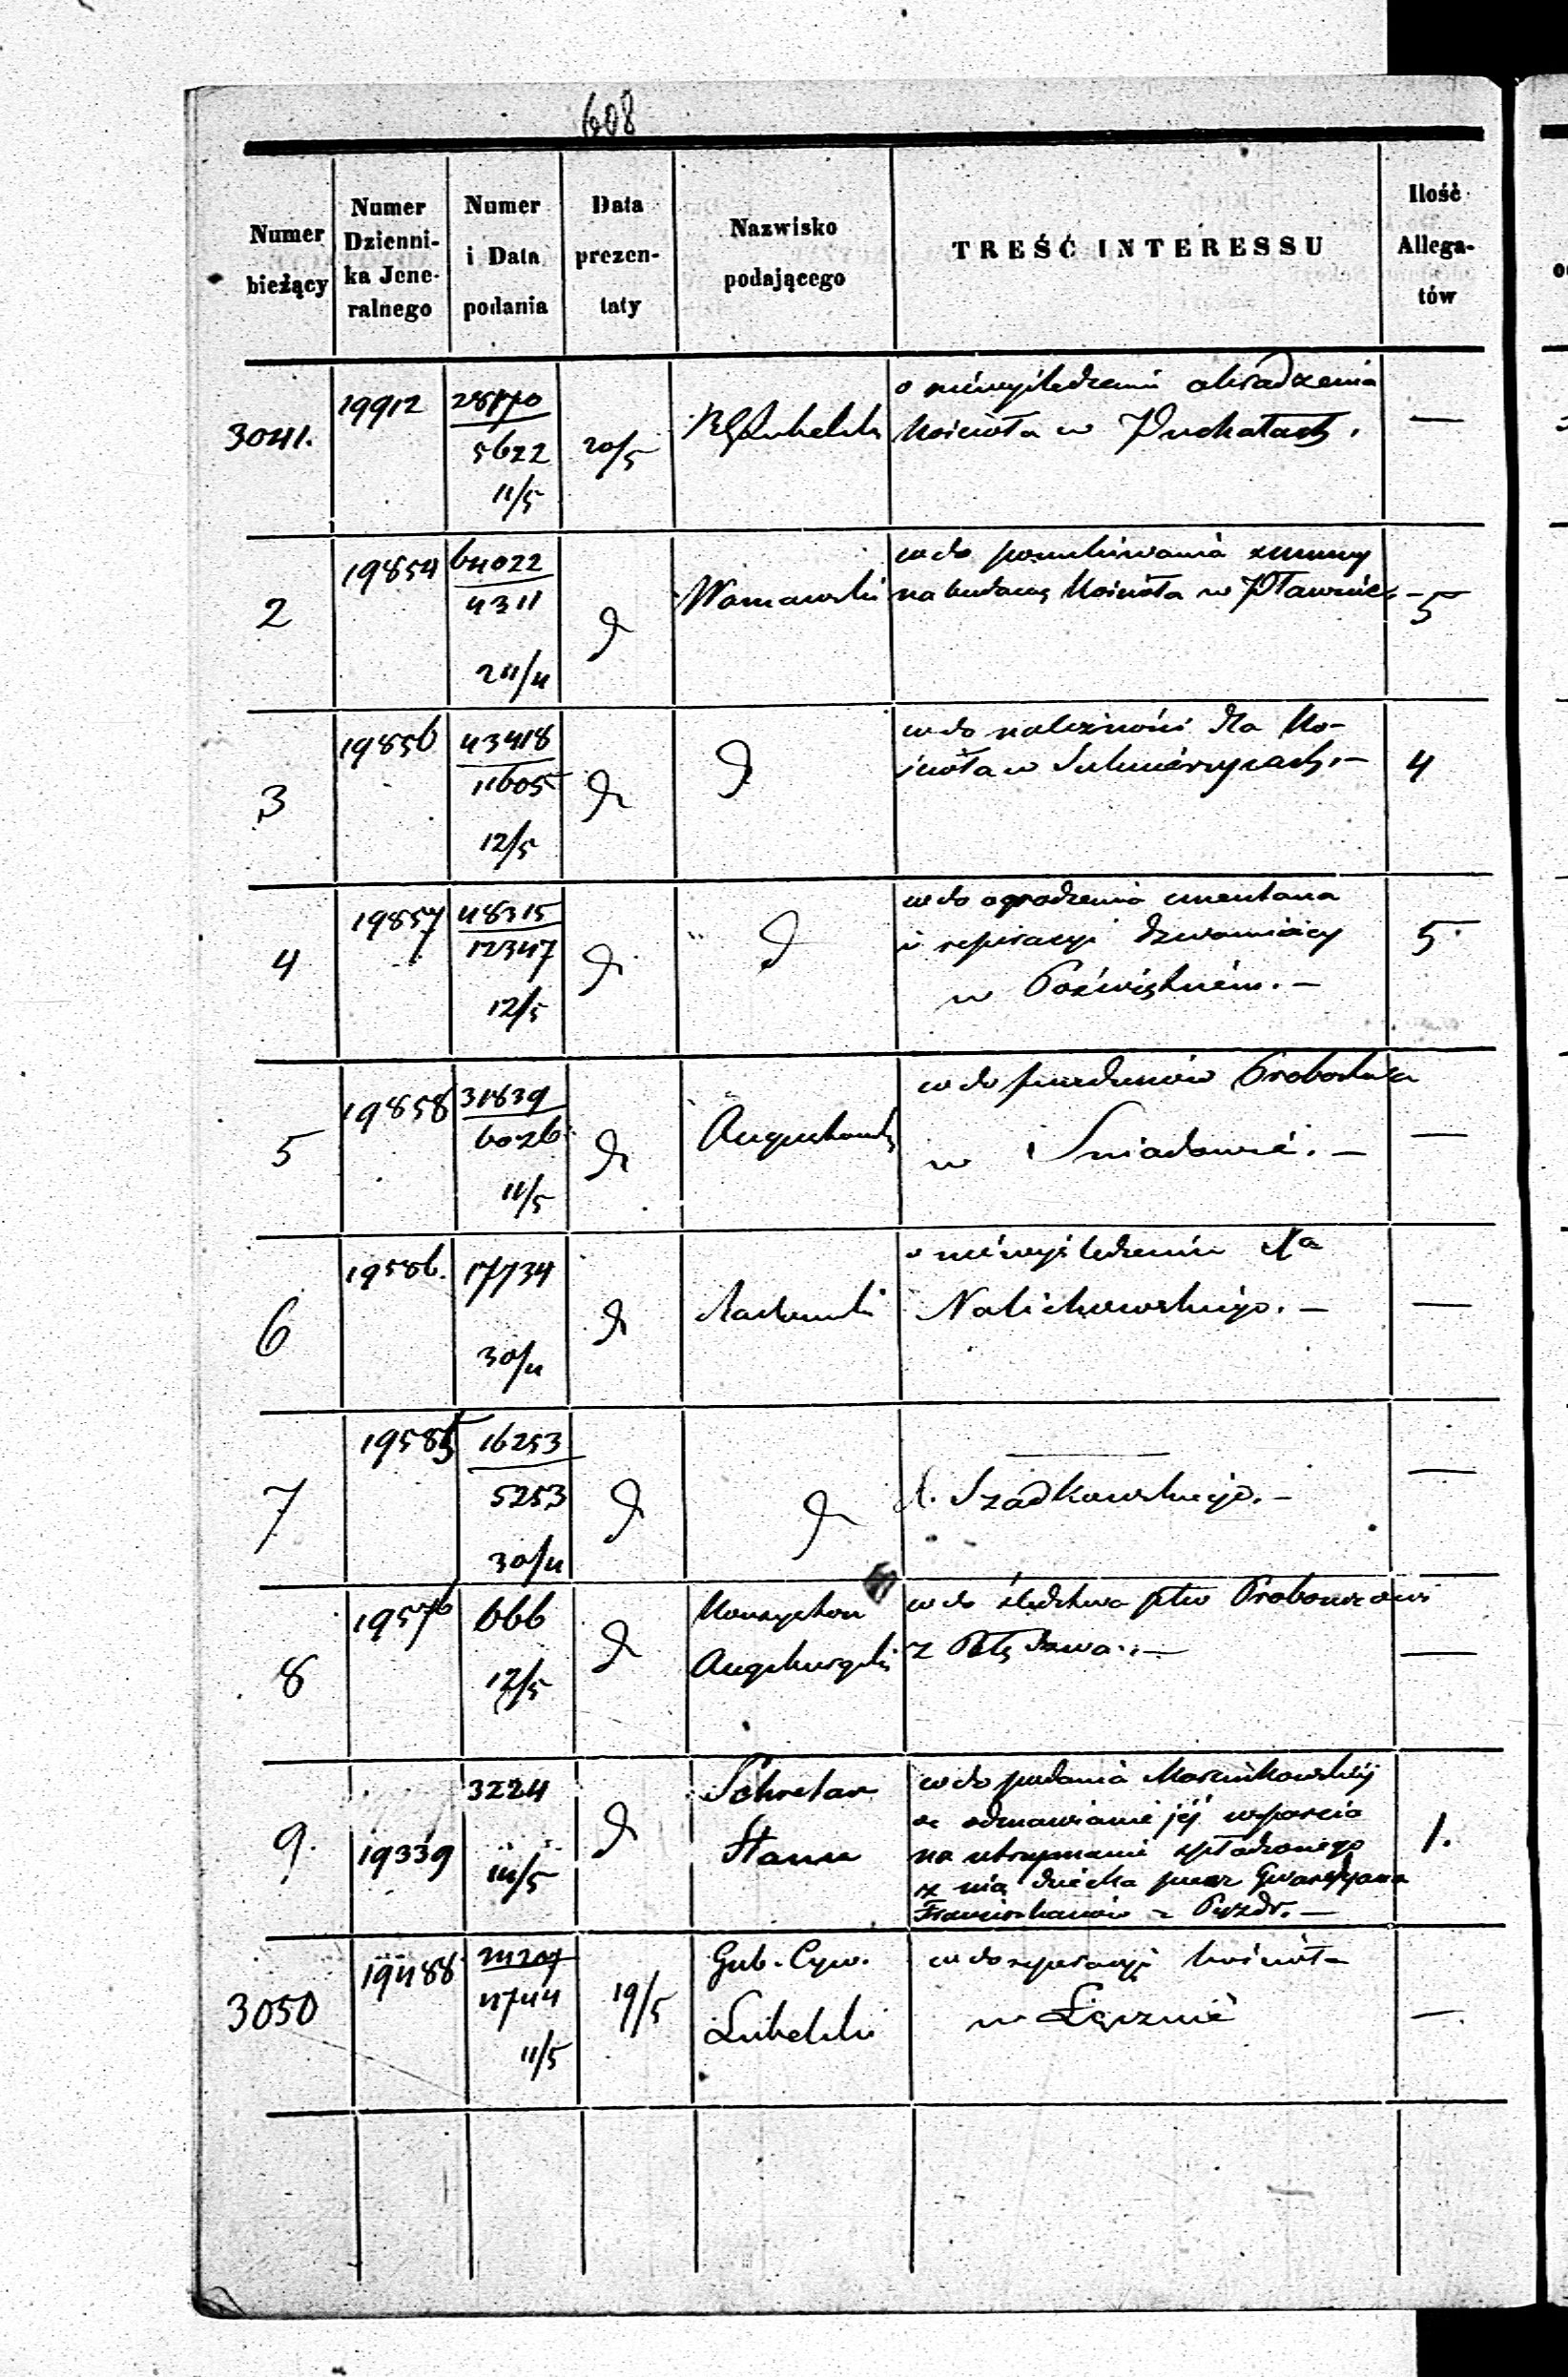 608
Numer bieżący
Numer Dzienni-ka Jene-ralnego
Numer i Data podania
Data prezen-taty
Nazwisko podającego
TREŚĆ INTERESSU
Ilość Allega-tów
3041. 19912 28170 / 5622 11/5 20/5 RGLubelski
o niewyśledzeniu okradzenia
Kościoła w Puchałach. —
2 19854 64022 / 4311 24/4 d Warszawski
wdo poszukiwania summy
na budowę Kościoła w Pławnie, — 5
3 19856 43418 / 11605 12/5 d d
wdo należności dla Ko-
ścioła w Sulmierzycach. — 4
4 19857 48315 / 12347 12/5 d d
wdo ogrodzenia cmentarza
i reperacyi dzwonnicy
w Poświętném. — 5
5 19858 31839 / 6026 11/5 d Augustowski
wdo funduszów Probostwa
w Sniadowie. — —
6 19586. 17734 30/4 d Radomski
o niewyśledzeniu Xa
—
7 19585 16253 / 5253 30/4 d d
X. Szadkowskiego. — —
8 19576 666 12/5 d Konsystorz
Augsburgski
wdo śledztwa ptw Proboszczowi
z —
9. 19339 3224 14/5 d Sekretarz
Stanu
wdo podania Marcinkowskiéj
o odmawianie jéj wsparcia
na utrzymanie spłodzonego
z nią dziecka przez Gwardyana
Franciszkanów z Pyzdr. — 1.
3050 19488 4744 11/5 19/5 Gub. Cyw.
Lubelski
wdo reperacyi kościoła
w Łęcznie —